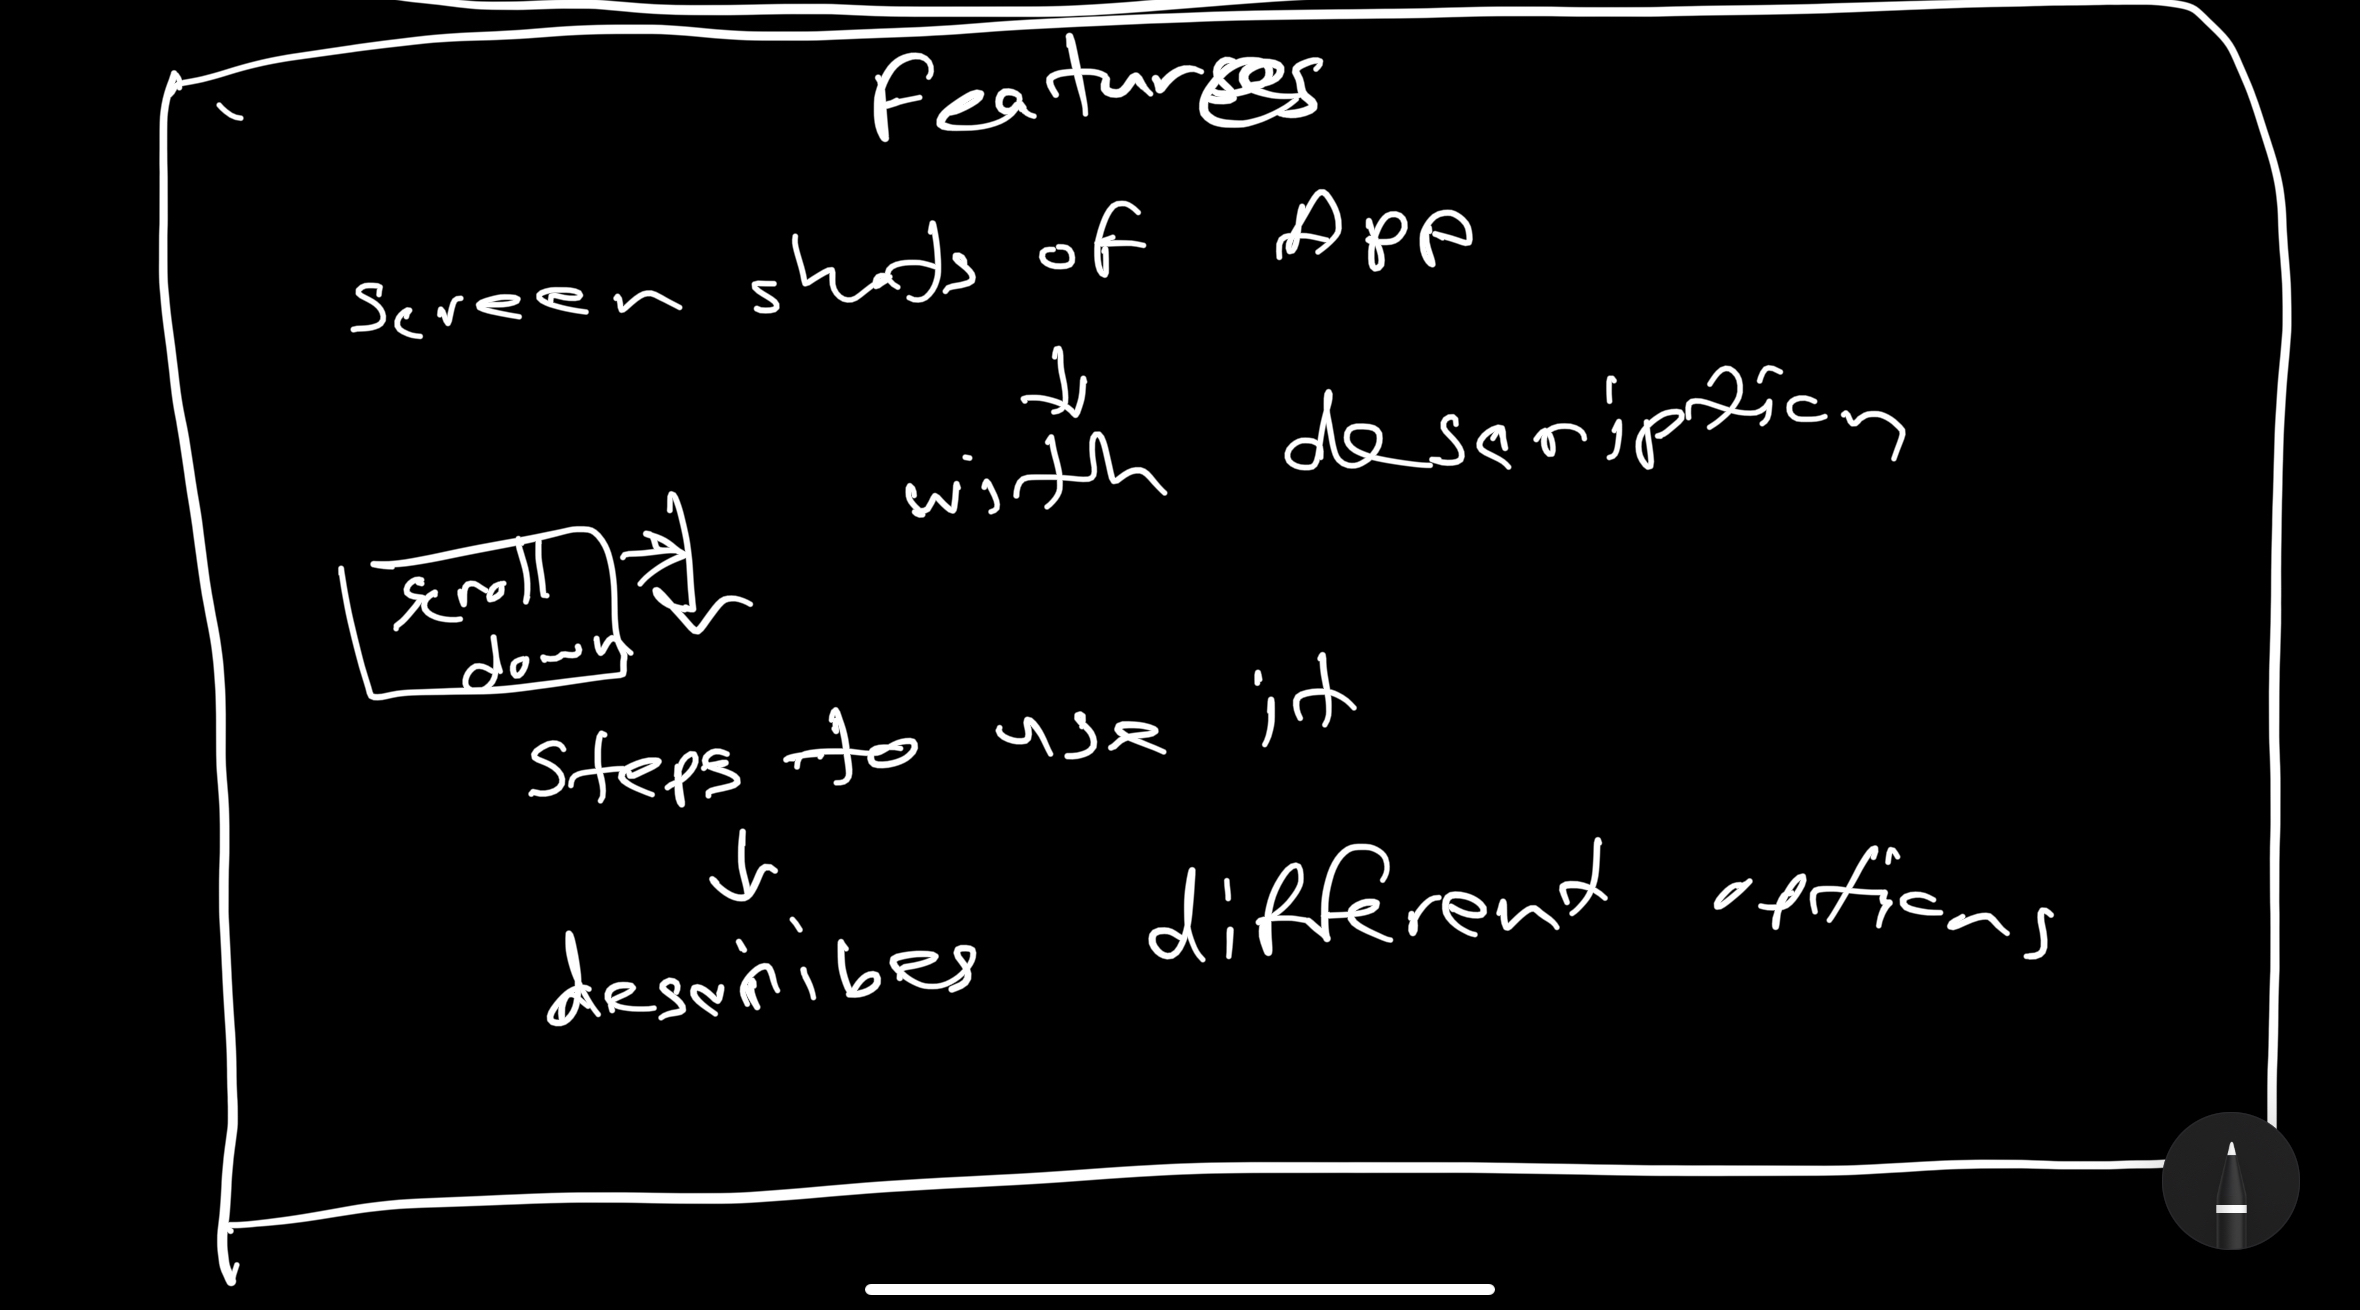 Features
Screen shots of App
with description
scroll
down
Steps to use it
describes different options